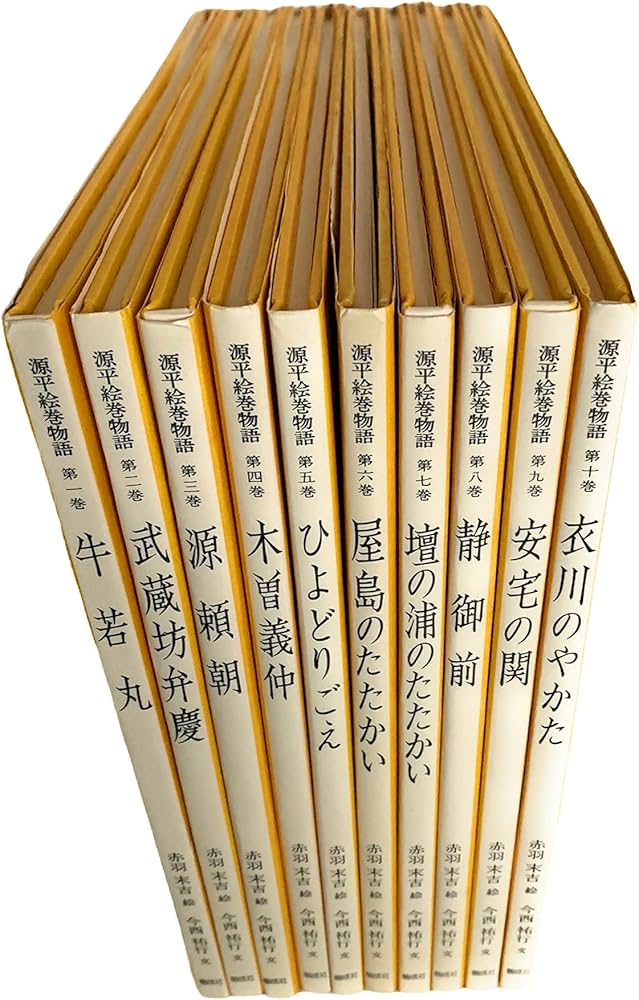 源平絵巻物語 第一巻 牛若丸 赤羽末吉 絵 今西祐行 文 偕成社
源平絵巻物語 第二巻 武蔵坊弁慶 赤羽末吉 絵 今西祐行 文 偕成社
源平絵巻物語 第三巻 源頼朝 赤羽末吉 絵 今西祐行 文 偕成社
源平絵巻物語 第四巻 木曽義仲 赤羽末吉 絵 今西祐行 文 偕成社
源平絵巻物語 第五巻 ひよどりごえ 赤羽末吉 絵 今西祐行 文 偕成社
源平絵巻物語 第六巻 屋島のたたかい 赤羽末吉 絵 今西祐行 文 偕成社
源平絵巻物語 第七巻 壇の浦のたたかい 赤羽末吉 絵 今西祐行 文 偕成社
源平絵巻物語 第八巻 静御前 赤羽末吉 絵 今西祐行 文 偕成社
源平絵巻物語 第九巻 安宅の関 赤羽末吉 絵 今西祐行 文 偕成社
源平絵巻物語 第十巻 衣川のやかた 赤羽末吉 絵 今西祐行 文 偕成社